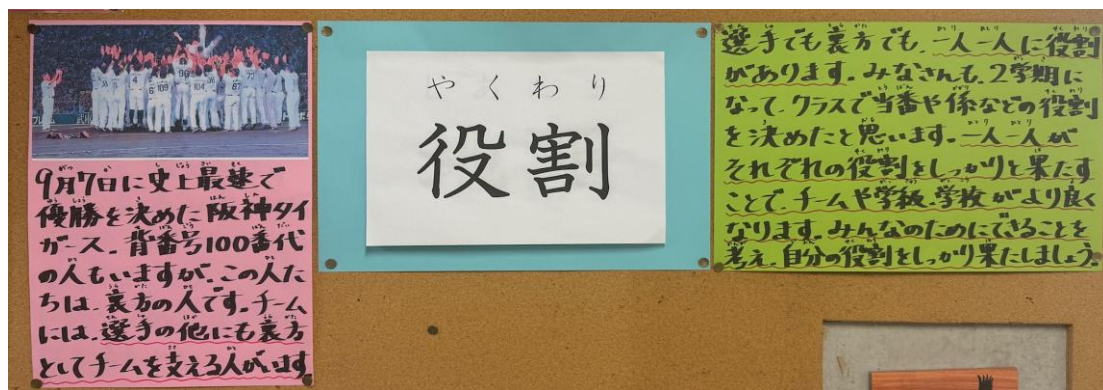 9月7日に史上最速で
優勝を決めた阪神タイ
ガース。背番号100番代
の人もいますが、この人た
ちは、裏方の人です。チーム
には、選手の他にも裏方
としてチームを支える人がいます
やくわり
役割
選手でも裏方でも、一人一人に役割
があります。みなさんも、2学期に
なって、クラスで当番や係などの役割
を決めたと思います。一人一人が
それぞれの役割をしっかりと果たす
ことで、チームや学級、学校がより良く
なります。みんなのためにできることを
考え、自分の役割をしっかり果たしましょう。